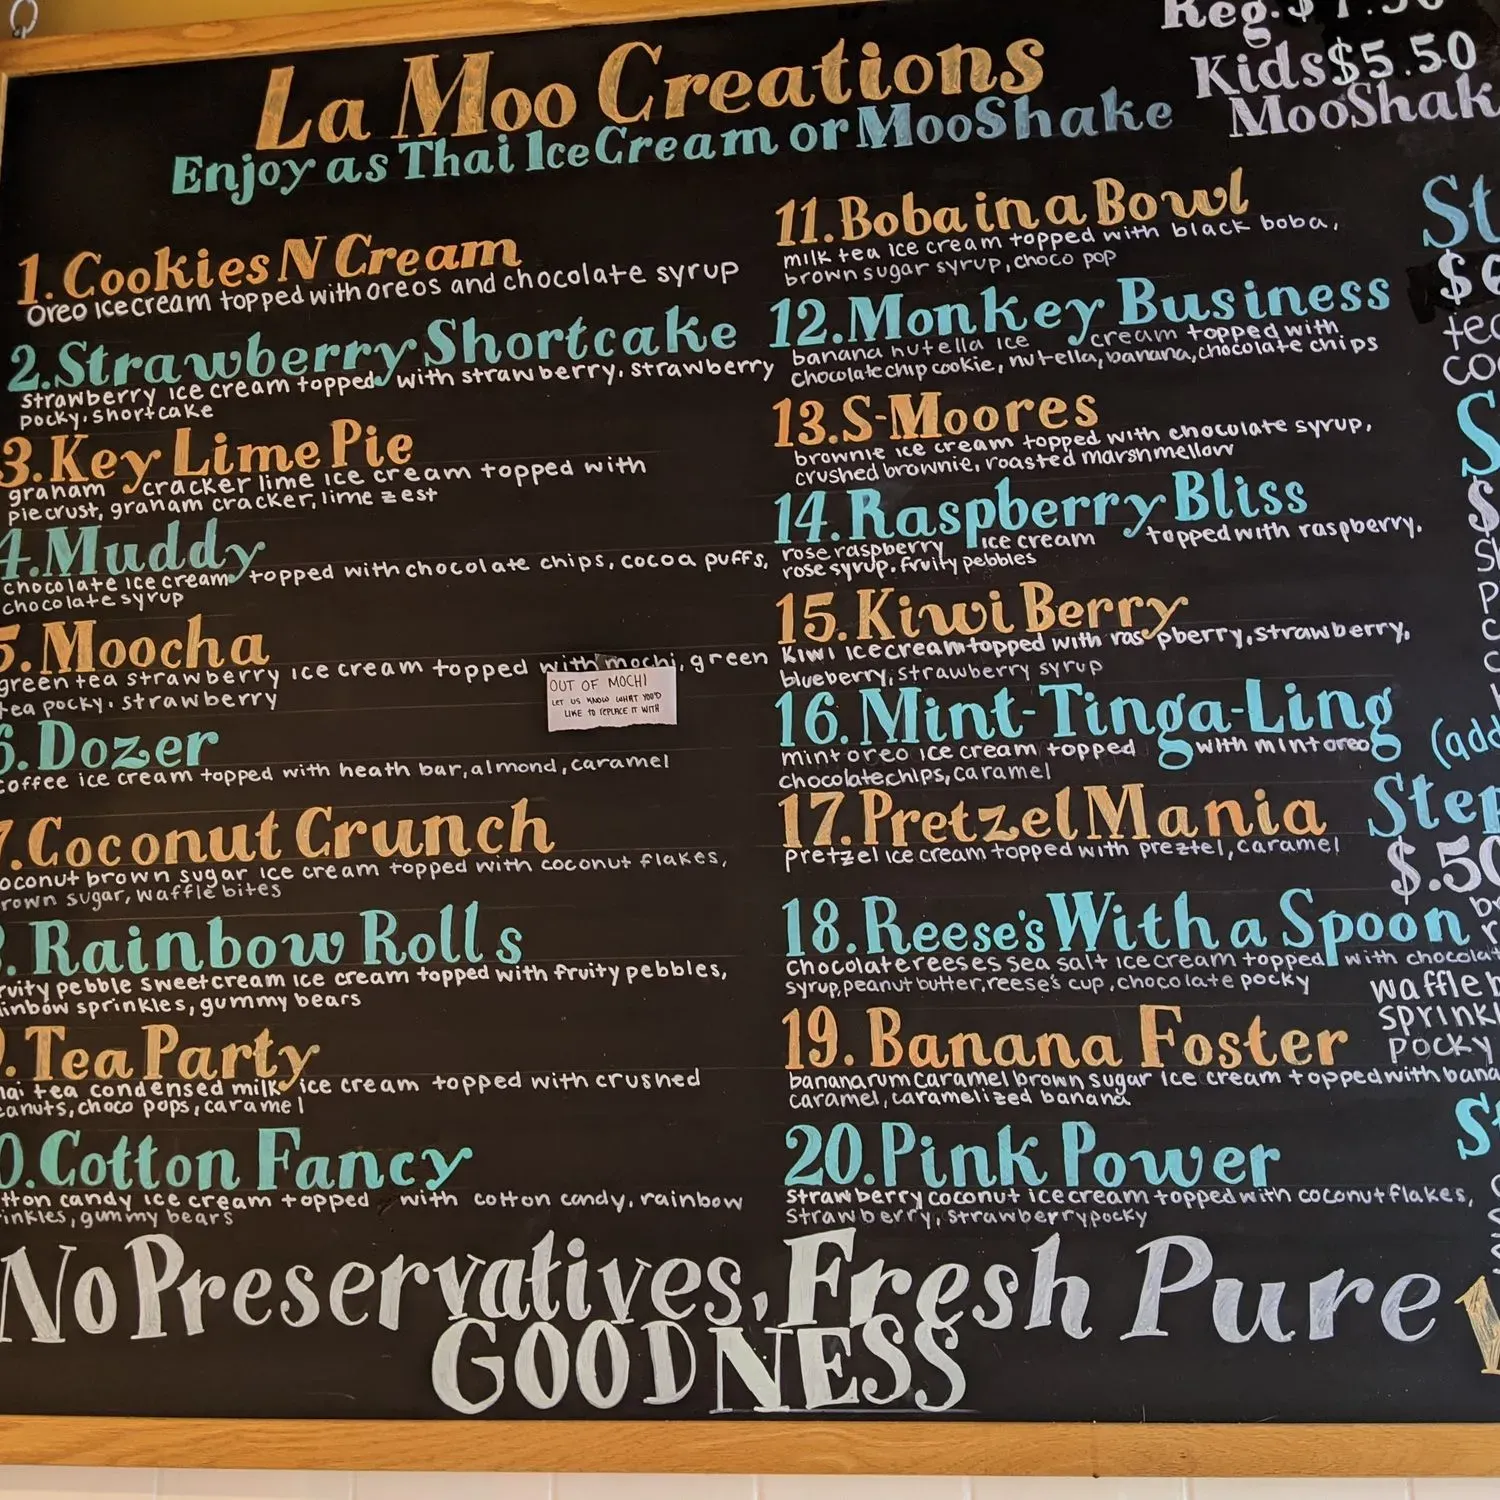 La Moo Creations
Enjoy as Thai Ice Cream or MooShake
Reg. $
Kids $5.50
1. Cookies N Cream
oreo ice cream topped with oreos and chocolate syrup
2. Strawberry Shortcake
strawberry ice cream topped with strawberry, strawberry
pocky, shortcake
3. Key Lime Pie
graham cracker lime ice cream topped with
pie crust, graham cracker, lime zest
4. Muddy
chocolate ice cream topped with chocolate chips, cocoa puffs,
chocolate syrup
5. Moocha
green tea strawberry ice cream topped with mochi, green
tea pocky, strawberry
OUT OF MOCHI
LET US KNOW WHAT YOU'D
LIKE TO REPLACE IT WITH
6. Dozer
coffee ice cream topped with heath bar, almond, caramel
7. Coconut Crunch
coconut brown sugar ice cream topped with coconut flakes,
brown sugar, waffle bites
. Rainbow Rolls
ruity pebble sweetcream ice cream topped with fruity pebbles,
inbow sprinkles, gummy bears
. Tea Party
hai tea condensed milk ice cream topped with crushed
eanuts, choco pops, caramel
0. Cotton Fancy
tton candy ice cream topped with cotton candy, rainbow
inkles, gummy bears
11. Boba in a Bowl
milk tea ice cream topped with black boba,
brown sugar syrup, choco pop
12. Monkey Business
banana nutella ice cream topped with
chocolate chip cookie, nutella, banana, chocolate chips
13. S-Moores
brownie ice cream topped with chocolate syrup,
crushed brownie, roasted marshmellow
14. Raspberry Bliss
rose raspberry ice cream topped with raspberry,
rose syrup, fruity pebbles
15. Kiwi Berry
kiwi ice cream topped with raspberry, strawberry,
blueberry, strawberry syrup
16. Mint-Tinga-Ling
mint oreo ice cream topped with mint oreo
chocolate chips, caramel
17. Pretzel Mania
pretzel ice cream topped with preztel, caramel
18. Reese's With a Spoon
chocolate reeses sea salt ice cream topped with chocolat
syrup, peanut butter, reese's cup, chocolate pocky
19. Banana Foster
banana rum caramel brown sugar ice cream topped with bana
caramel, caramelized banana
20. Pink Power
strawberry coconut ice cream topped with coconut flakes,
strawberry, strawberry pocky
MooShak
St
$6
(add
Step
$.50
waffle b
sprinkl
pocky
No Preservatives, Fresh Pure
GOODNESS